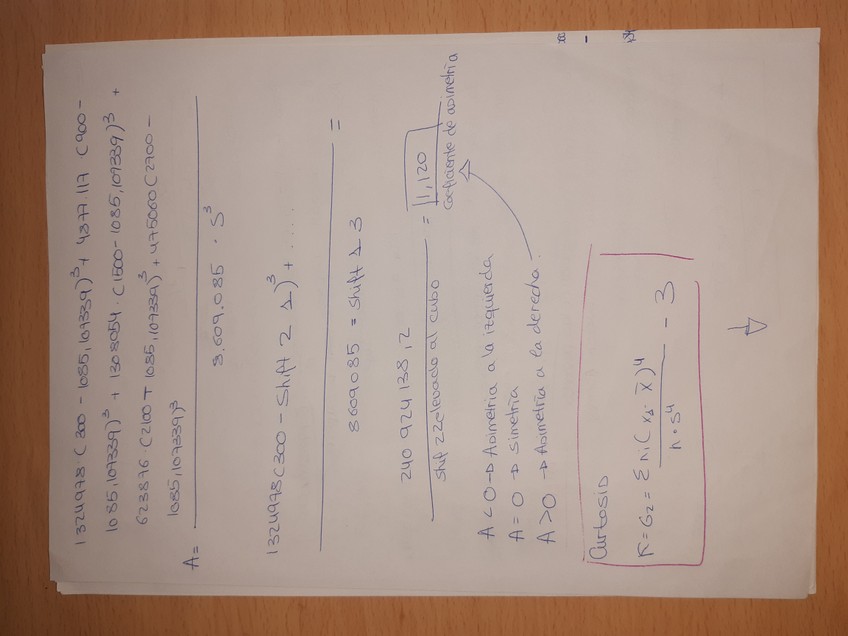 1324978 · (300 - 1085,107339)³ + 4877.117 (900 -
1085,107339)³ + 1308054 · (1500 - 1085,107339)³ +
623876 · (2100 - 1085,107339)³ + 475060 (2700 -
1085,107339)³
A =
8.609.085 · S³
1324978 (300 - Shift 2 1)³ + ....
=
8609085 = Shift 2 3
240 924 138,2
Shif 22 elevado al cubo
= 1,120
coeficiente de asimetría
A < 0 → Asimetria a la izquierda
A = 0 → Simetría
A > 0 → Asimetría a la derecha.
Curtosis
K = G₂ = Σ ni (xi - x̄)⁴
n · S⁴
- 3